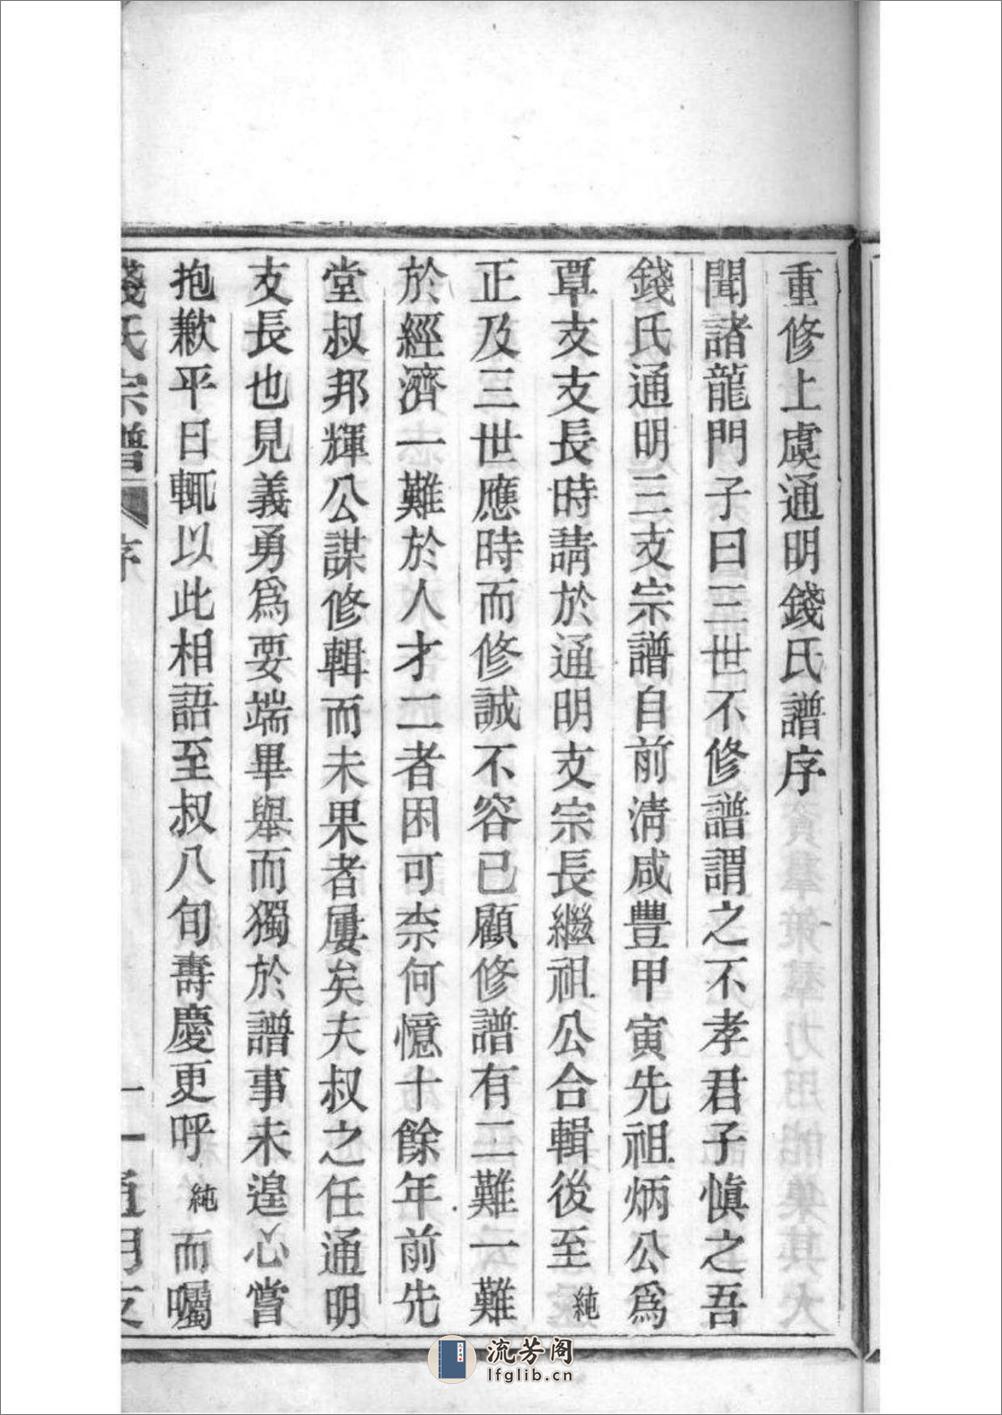 重修上虞通明錢氏譜序
聞諸龍門子曰三世不修譜謂之不孝君子愼之吾
錢氏通明三支宗譜自前淸咸豐甲寅先祖炳公爲
覃支支長時請於通明支宗長繼祖公合輯後至純
正及三世應時而修誠不容已顧修譜有二難一難
於經濟一難於人才二者困可柰何憶十餘年前先
堂叔邦輝公謀修輯而未果者屢矣夫叔之任通明
支長也見義勇爲要端畢舉而獨於譜事未遑心嘗
抱歉平日輒以此相語至叔八旬壽慶更呼純而囑
錢氏宗譜 序 一 通明支
流芳阁
lfglib.cn